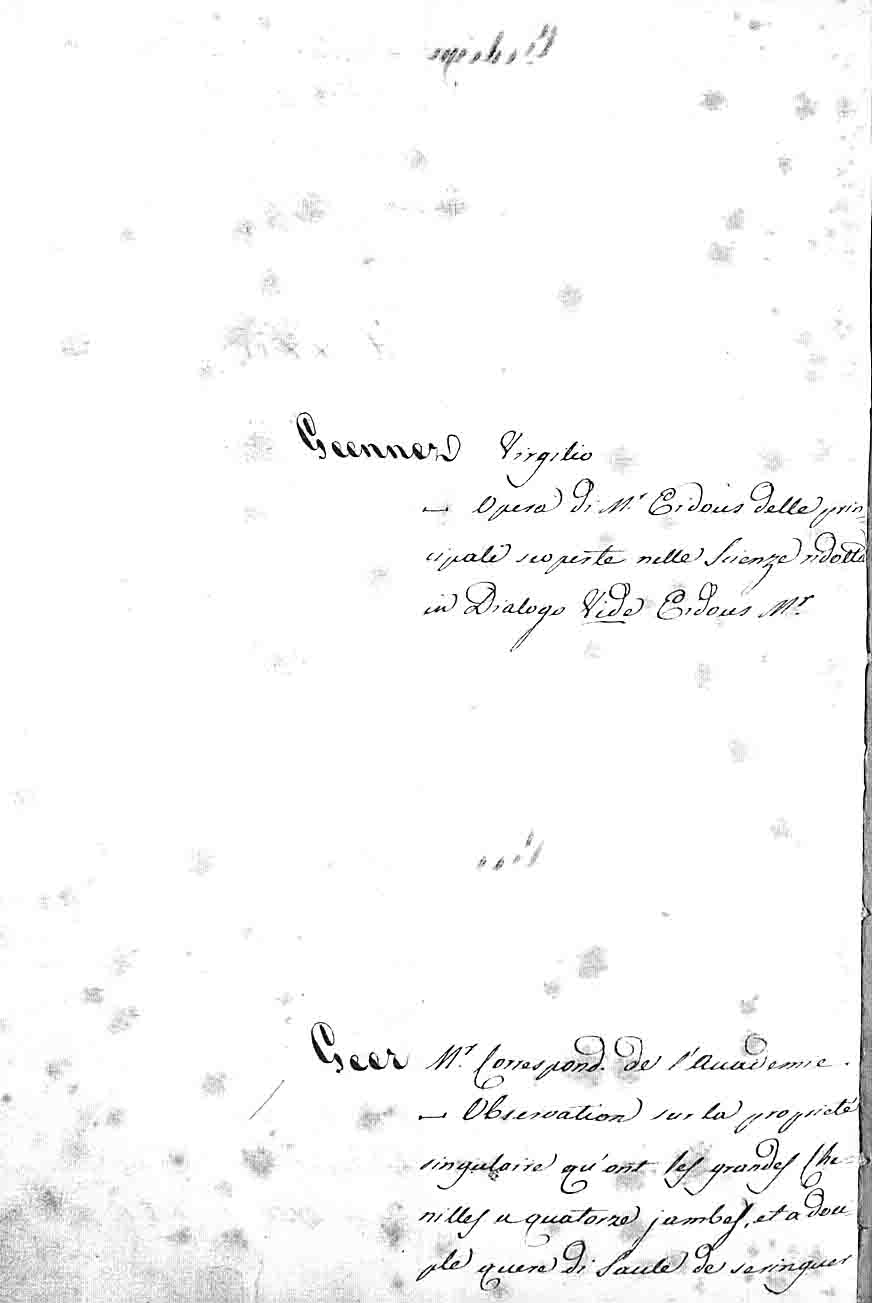 Geenner Virgilio
— Opera di M.r Eidous delle prin-
cipali scoperte nelle Scienze ridotta
in Dialogo Vide Eidous M.r
Geer M.r Correspond. de l'Academie.
— Observation sur la propieté
singulaire qu'ont les grandes Che-
nilles a quatorze jambes, et a dou-
ple quere di Saule de seringuer